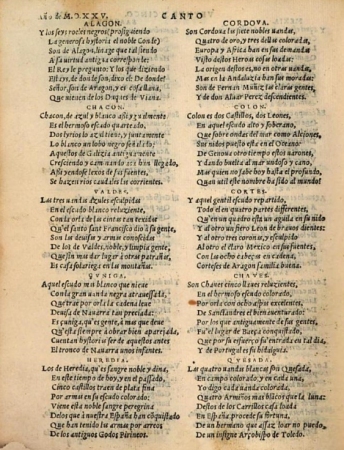 Año de M.D.XXV. CANTO
ALAGON.
Y los seys roeles negros prosiguiendo
La generosa hystoria el noble Conde)
Son de Alagon, linage que tal siendo
A su virtud antigua corresponde:
El Rey le pregunto; y los que diziendo
El soy, de don de son, dixo el: De donde?
Señor, son de Aragon, y es casa llana,
Que vienen de los Duques de Viana.
CHACON.
Chacon, de azul y blanco assi
Es el hermoso escudo
De los lyrios lo azul
Lo blanco un lobo negro señalado;
Aquellos de Galizia
Creciendo y caminando aca han llegado,
Assi yendose lexos de sus fuentes,
Se hazen rios caudales corrientes.
VALDES.
Las tres unidas azules esculpidas
En el escudo blanco reluziente,
Con la orla de las cintas
Qu'el santo sant Francisco dio a su gente,
Son las desuso y armas conocidas
De los de Valdes, noble y limpia gente,
Que sin mudar lugar a otras patrañas,
Es casa solariega en las montañas.
ÇUÑIGA.
Aquel escudo mas blanco que nieve
Con la gran vanda negra atravessada,
Que tras por orla la cadena leve
Deusa de Navarra tan preciada:
Es Çuñiga, qu'es gente, a mas que deve
Qu'es gente siempre a obrar bien aparejada,
Cuentan hystorias ser de aquestos antes
El tronco de Navarra unos infantes.
HEREDIA.
Los de Heredia, qu'es sangre noble y dina,
En este tiempo de hoy, y en el passado,
Cinco castillos tienen de plata fina
Por armas en su escudo colorado:
Viene esta noble sangre peregrina
Delos que a nuestra España han conquistado
Que han tenido las armas por arreos
De los antiguos Godos Pirineos.
CORDOVA.
Son Cordova las siete nobles vandas,
Quatro de oro, y tres dellas coloradas,
Europa y Africa han en sus demandas
Visto dellos Heroas cosas loadas:
La origen destos no, en otras vandas,
Mas en la Andaluzia han sus moradas:
Son de Fernan Muñiz las claras gentes,
Y de don Alvar Perez descendientes.
COLON.
Colon es dos Castillos, dos Leones,
En aquel escudo alto y soberano,
Que sobre ondas del mar como Alcyones,
Sus nidos puestos esta en el Oceano:
De Genova truxo estos varones,
Y dando buelta al mar undoso y cano,
Mar quien no sabe hoy hasta el profundo,
Quan util este nombre ha sido al mundo!
CORTES.
Y aquel gentil escudo repartido,
Todo el en quatro partes differentes,
Qu'en un quadro esta un aguila en su nido
Y al otro un fiero Leon de bravos dientes:
Y al otro tres coronas, y esculpido
Al otro el claro Mexico en sus fuentes,
Con las ocho cabeças en cadena,
Corteses de Aragon familia buena.
CHAVES.
Son Chaves cinco llaves reluzientes,
En el hermoso escudo colorado,
Por orla con ocho aspas excelentes,
De sant Andres el bienaventurado:
Por los que antiguamente de sus gentes,
Fue el lugar de Sueja conquistado,
que por su esfuerço fue entrada en tal dia,
Y de Portugal es su hidalguia.
QUESADA.
Las quatro vandas blancas son Quesada,
En campo colorado, y en cada una,
Yo digo en cada vanda colorada,
Quatro Armiños mas blancos que la luna:
Destos de los Carrillos casa loada
En España procede su fortuna,
De un hermano que assaz loar no puedo,
De un insigne Arçobispo de Toledo.